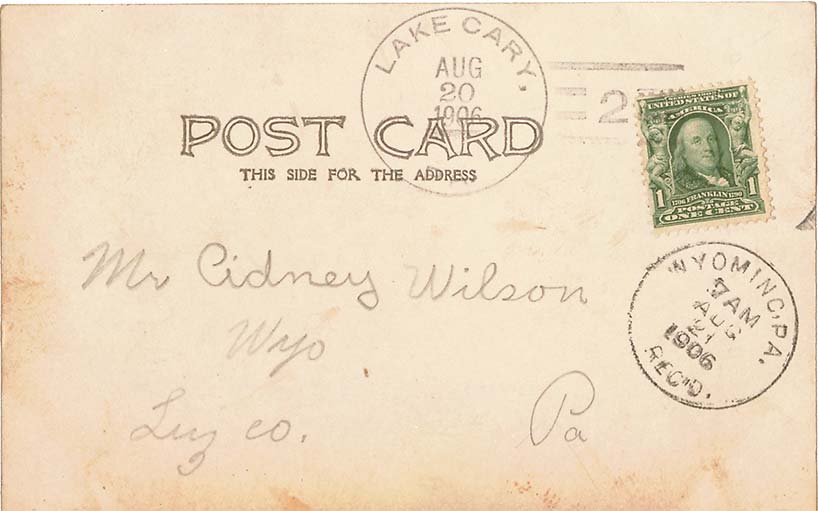 LAKE CARY,
AUG
20
1906
2
POST CARD
THIS SIDE FOR THE ADDRESS
SERIES 1902
UNITED STATES OF
AMERICA
1 1
1706 FRANKLIN 1790
POSTAGE
ONE CENT
Mr Cidney Wilson
Wyo
Luz co. Pa
WYOMING, PA.
7 AM
AUG
21
1906
REC'D.